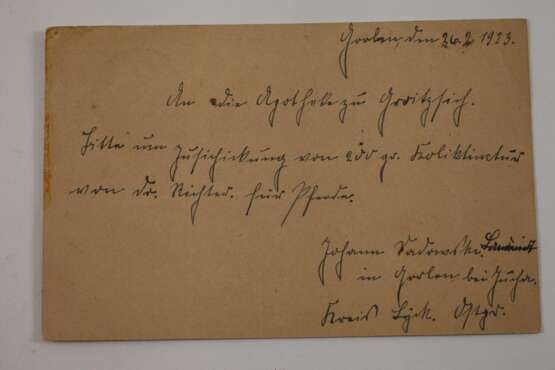 Gorlen, den 26.2 1923.
An die Apotheke zu Groitzsich.
Bitte um Zusichickung von 200 gr. Koliktinctur
von Dr. Richter. für Pferde.
Johann Sadowski.
in Gorlen bei Jucha.
Kreis Lyck. Ostpr.